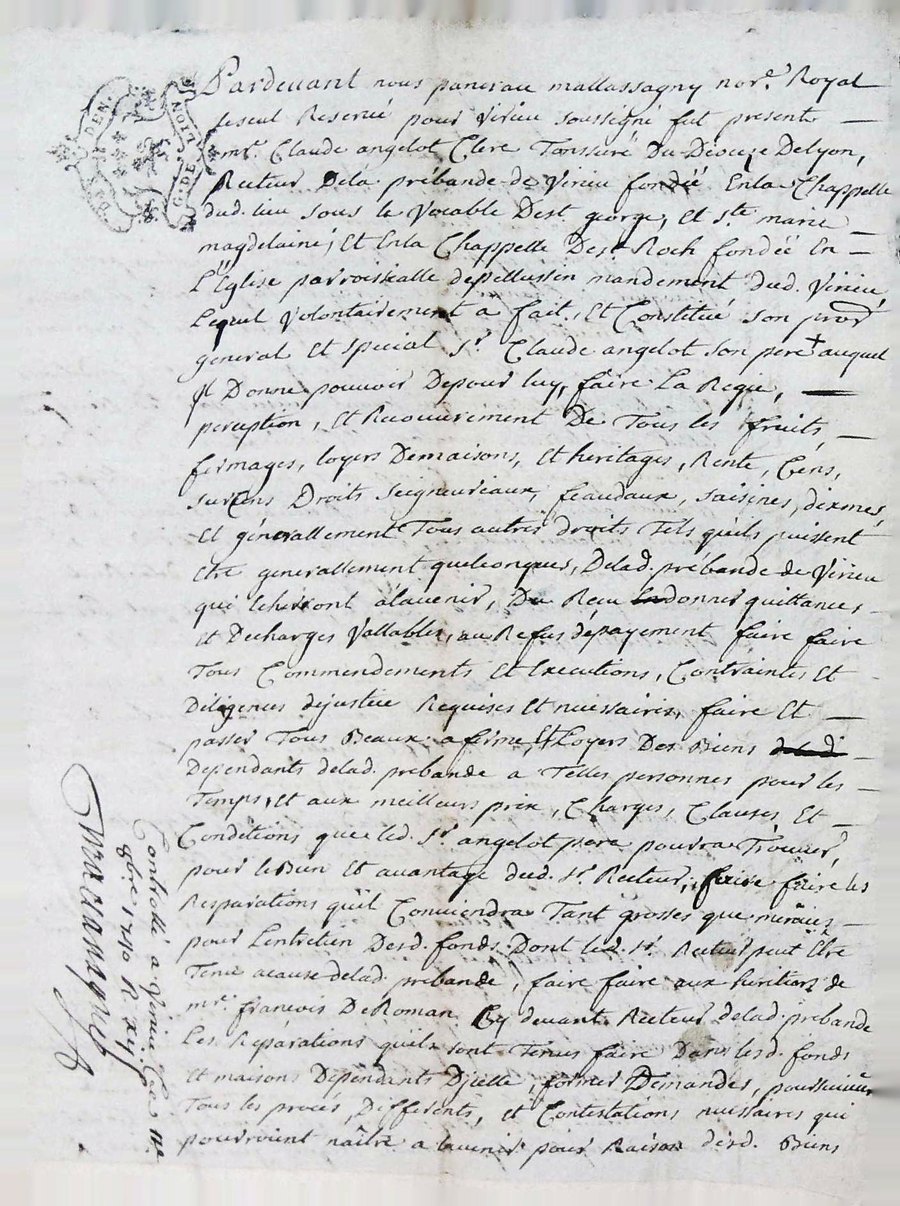 Pardevant nous pancrau mallassagny nore. Royal
leseul Reservé pour Virieu soussigné fut present
mre. Claude angelot Clerc Tonsuré Du Diocese Delyon,
Recteur Dela prébande de Virieu fondée Enla Chappelle
dud. lieu sous le Vocable Dest george, et ste marie
magdelaine, Et Enla Chappelle Dest Roch fondée En
L'Eglise parroissialle depellussin mandement dud. Virieu
Lequel Volontairement a fait, Et Constitué son procr
general et special sr. Claude angelot son pere + auquel
Jl Donne pouvoir Depour luy, faire La Regie,
perception, et Recouvrement De Tous les fruits,
fermages, loyers Demaisons, et heritages, Rente, Cens,
surcens Droits seigneuriaux, feaudaux, saisines, dixmes
Et générallement Tous autres droits Tels qu'ils puissent
Etre generallement quelconques, Delad. prébande de Virieu
qui Echerront àlavenir, Du Recu donner quittances
et Decharges Vallables, au Refus depayement faire faire
Tous Commendements Et Executions, Contraintes Et
Diligences dejustice Requises et necessaires, faire Et
passer Tous Beaux a ferme Et Loyers Des Biens
Dependants delad. prebande a Telles personnes pour les
Temps, et aux meilleurs prix, Charges, Clauses Et
Conditions que led. sr. angelot pere pourra Trouver,
pour le Bien et avantage dud. sr. Recteur, faire faire les
Resparations qu'il Conviendra Tant grosses que menües
pour Lentretien Desd. fonds Dont led. sr. Recteur peut Etre
Tenu acause delad. prebande, faire faire aux heritiers de
mre. francois DeRoman Cy devant Recteur delad. prebande
Les Réparations quils sont Tenus faire Dans lesd. fonds
et maisons Dépendants Dicelle, former Demandes, poursuivre
Tous les procés, Differents, et Contestations necessaires qui
pourroient naître a lavenir pour Raison desd. Biens
Controllé a Virieu Ce 11e.
9bre 1740 R. xij s.
GE DE LION
DEN